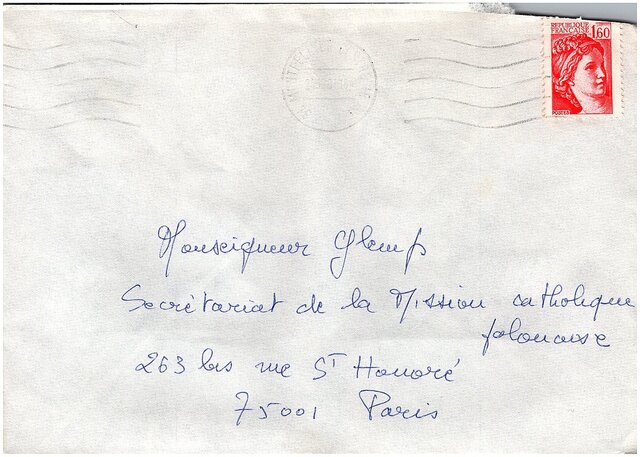 REPUBLIQUE
FRANÇAISE 1,60
POSTES
Monseigneur Glemp
Secrétariat de la Mission catholique
polonaise
263 bis rue ST Honoré
75001 Paris